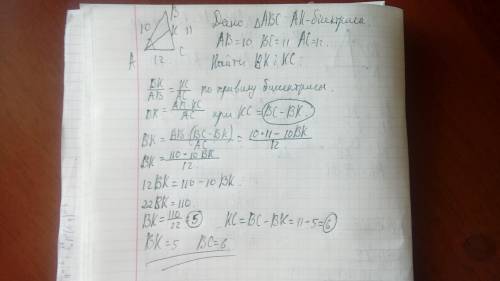 B
10 K 11
A 12 C
Дано: △ABC AK-бісектриса
AB=10 BC=11 AC=12.
Найти BK і KC.
BK/AB = KC/AC по правилу бісектриси.
BK = AB·KC/AC при KC = BC-BK.
BK = AB(BC-BK)/AC = 10·11-10BK/12
BK = 110-10BK/12.
12BK=110-10BK.
22BK=110.
BK=110/22=5 KC=BC-BK=11-5=6
BK=5 BC=6